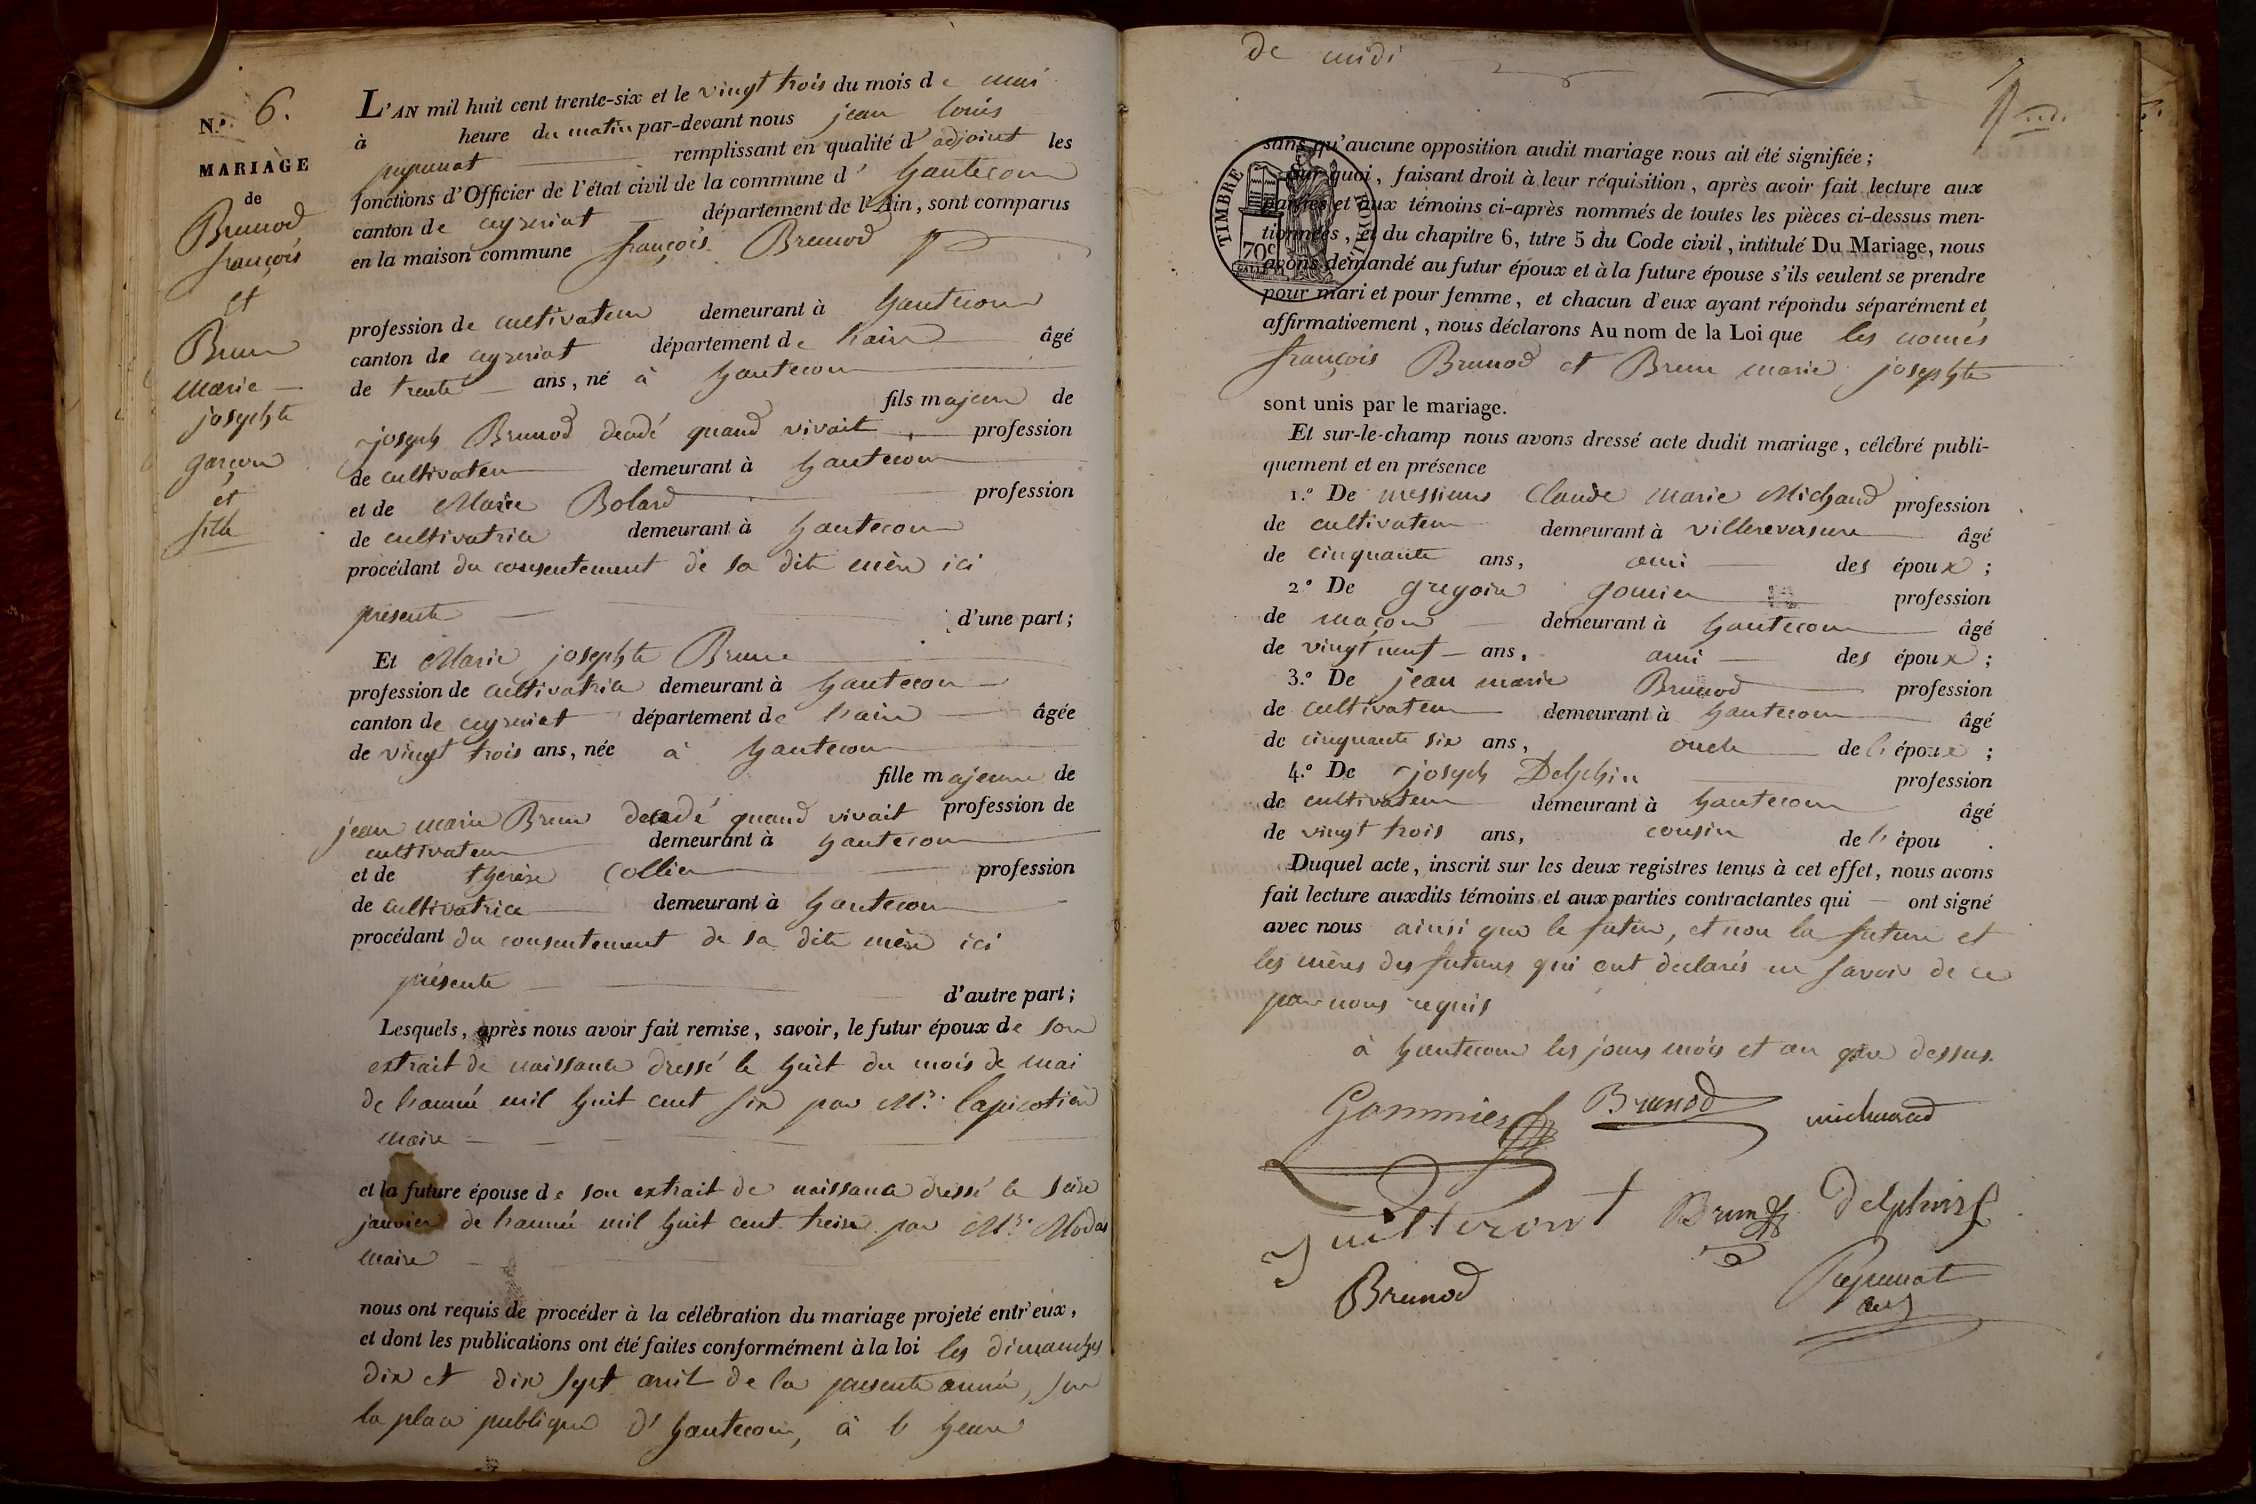 N.° 6.
MARIAGE
de
Brunod
françois
et
Brun
marie
josephte
garçon
et
fille
L'AN mil huit cent trente-six et le vingt trois du mois de mai
à heure du matin par-devant nous jean louis
remplissant en qualité d'adjoint les
fonctions d'Officier de l'état civil de la commune d' hautecour
canton de ceyzeriat département de l'Ain, sont comparus
en la maison commune françois Brunod
profession de cultivateur demeurant à hautecour
canton de ceyzeriat département de l'ain âgé
de trente ans, né à hautecour
fils majeur de
joseph Brunod decedé quand vivait profession
de cultivateur demeurant à hautecour
et de Marie Bolard profession
de cultivatrice demeurant à hautecour
procédant du consentement de sa dite mère ici
présente d'une part;
Et Marie josephte Brun
profession de cultivatrice demeurant à hautecour
canton de ceyzeriat département de l'ain âgée
de vingt trois ans, née à hautecour
fille majeure de
jean marie Brun decedé quand vivait profession de
cultivateur demeurant à hautecour
et de therese Collier profession
de cultivatrice demeurant à hautecour
procédant du consentement de sa dite mère ici
présente d'autre part;
Lesquels, après nous avoir fait remise, savoir, le futur époux de son
extrait de naissance dressé le huit du mois de mai
de l'année mil huit cent six par Mr. lapicotière
maire
et la future épouse de son extrait de naissance dressé le seize
janvier de l'année mil huit cent treize par Mr. Modas
maire
nous ont requis de procéder à la célébration du mariage projeté entr'eux,
et dont les publications ont été faites conformément à la loi les dimanches
dix et dix sept avril de la presente année, sur
la place publique d'hautecour, à l'heure
de midi
TIMBRE ROYAL
70c
sans qu'aucune opposition audit mariage nous ait été signifiée;
Sur quoi, faisant droit à leur réquisition, après avoir fait lecture aux
parties et aux témoins ci-après nommés de toutes les pièces ci-dessus men-
tionnées, et du chapitre 6, titre 5 du Code civil, intitulé Du Mariage, nous
avons demandé au futur époux et à la future épouse s'ils veulent se prendre
pour mari et pour femme, et chacun d'eux ayant répondu séparément et
affirmativement, nous déclarons Au nom de la Loi que les només
françois Brunod et Brun marie josephte
sont unis par le mariage.
Et sur-le-champ nous avons dressé acte dudit mariage, célébré publi-
quement et en présence
1.° De messieurs Claude marie Michaud profession
de cultivateur demeurant à villereversure âgé
de cinquante ans, ami des époux;
2.° De gregoire gomier profession
de maçon demeurant à hautecour âgé
de vingt neuf ans, ami des époux;
3.° De jean marie Brunod profession
de cultivateur demeurant à hautecour âgé
de cinquante six ans, oncle de l'époux;
4.° De joseph Delphin profession
de cultivateur demeurant à hautecour âgé
de vingt trois ans, cousin de l'épou
Duquel acte, inscrit sur les deux registres tenus à cet effet, nous avons
fait lecture auxdits témoins et aux parties contractantes qui ont signé
avec nous ainsi que le futur, et non la future et
les mères des futurs qui ont declarés ne savoir de ce
par nous requis
à hautecour les jours mois et an que dessus.
Gommier Brunod michaud
Brun Delphin
Brunod